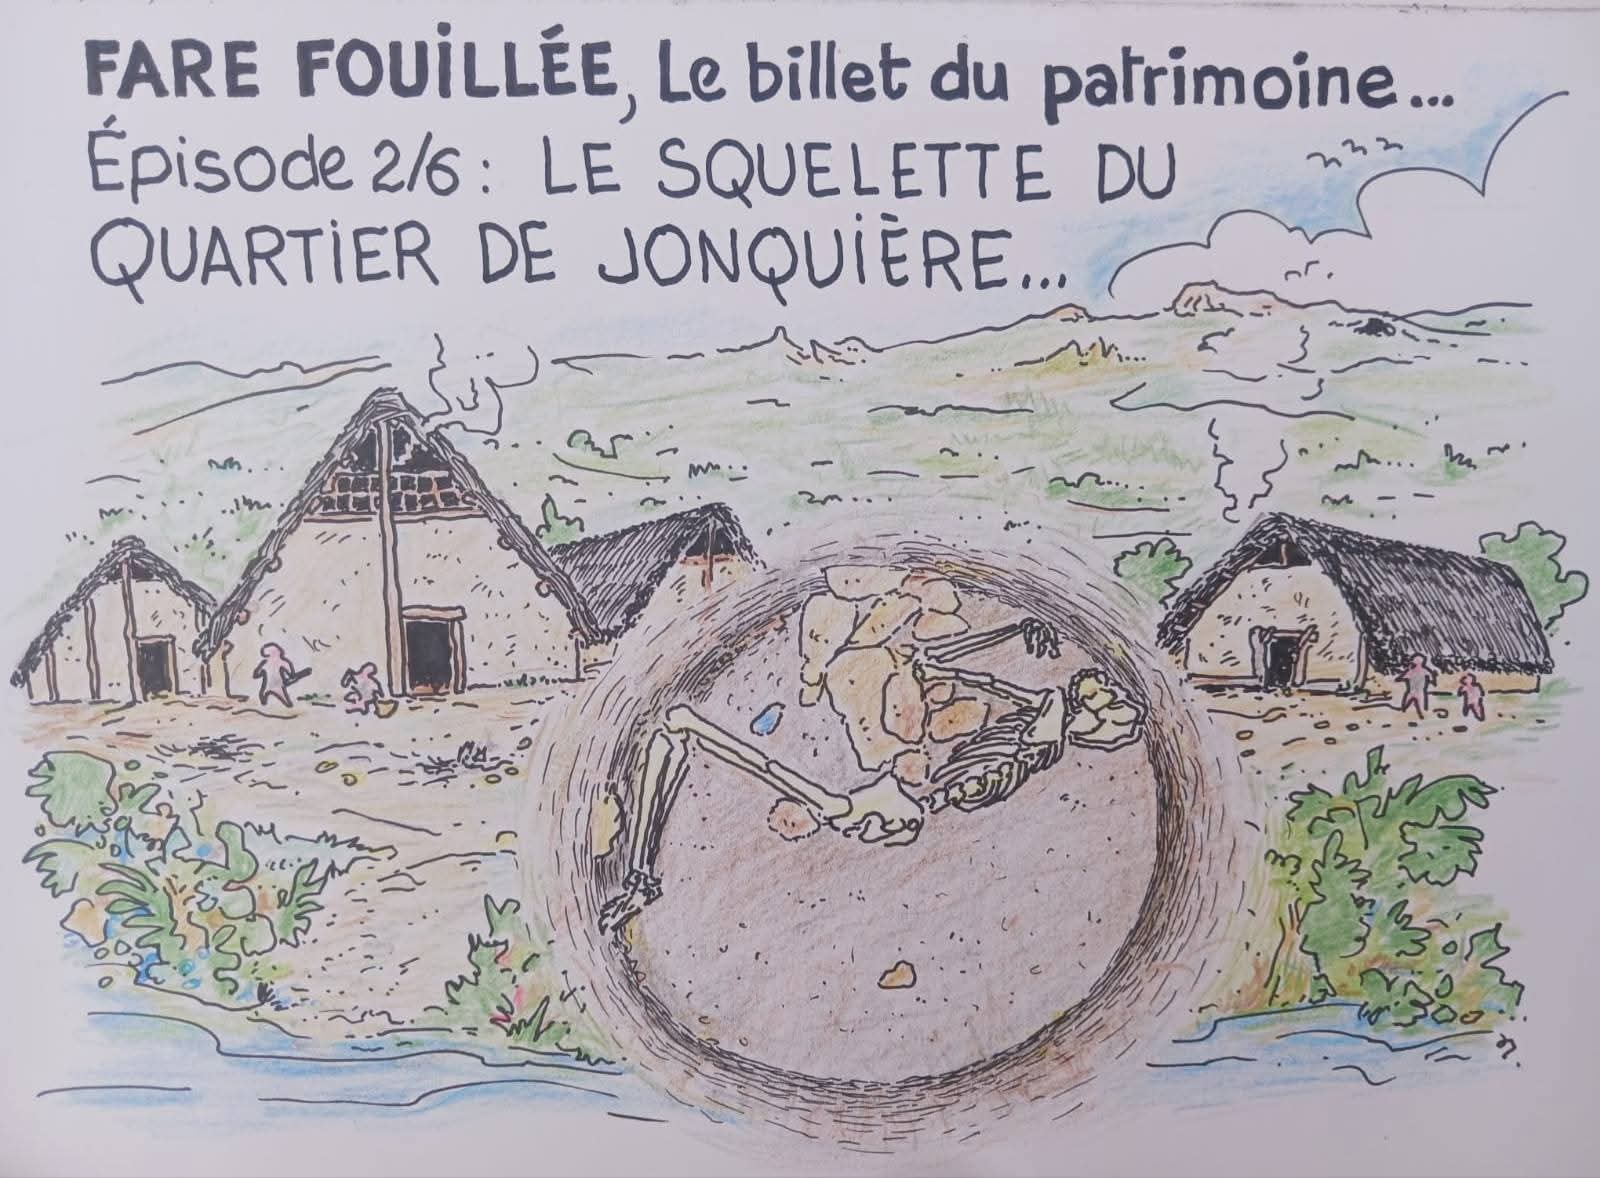 FARE FOUILLÉE, Le billet du patrimoine...
Épisode 2/6 : LE SQUELETTE DU
QUARTIER DE JONQUIÈRE...